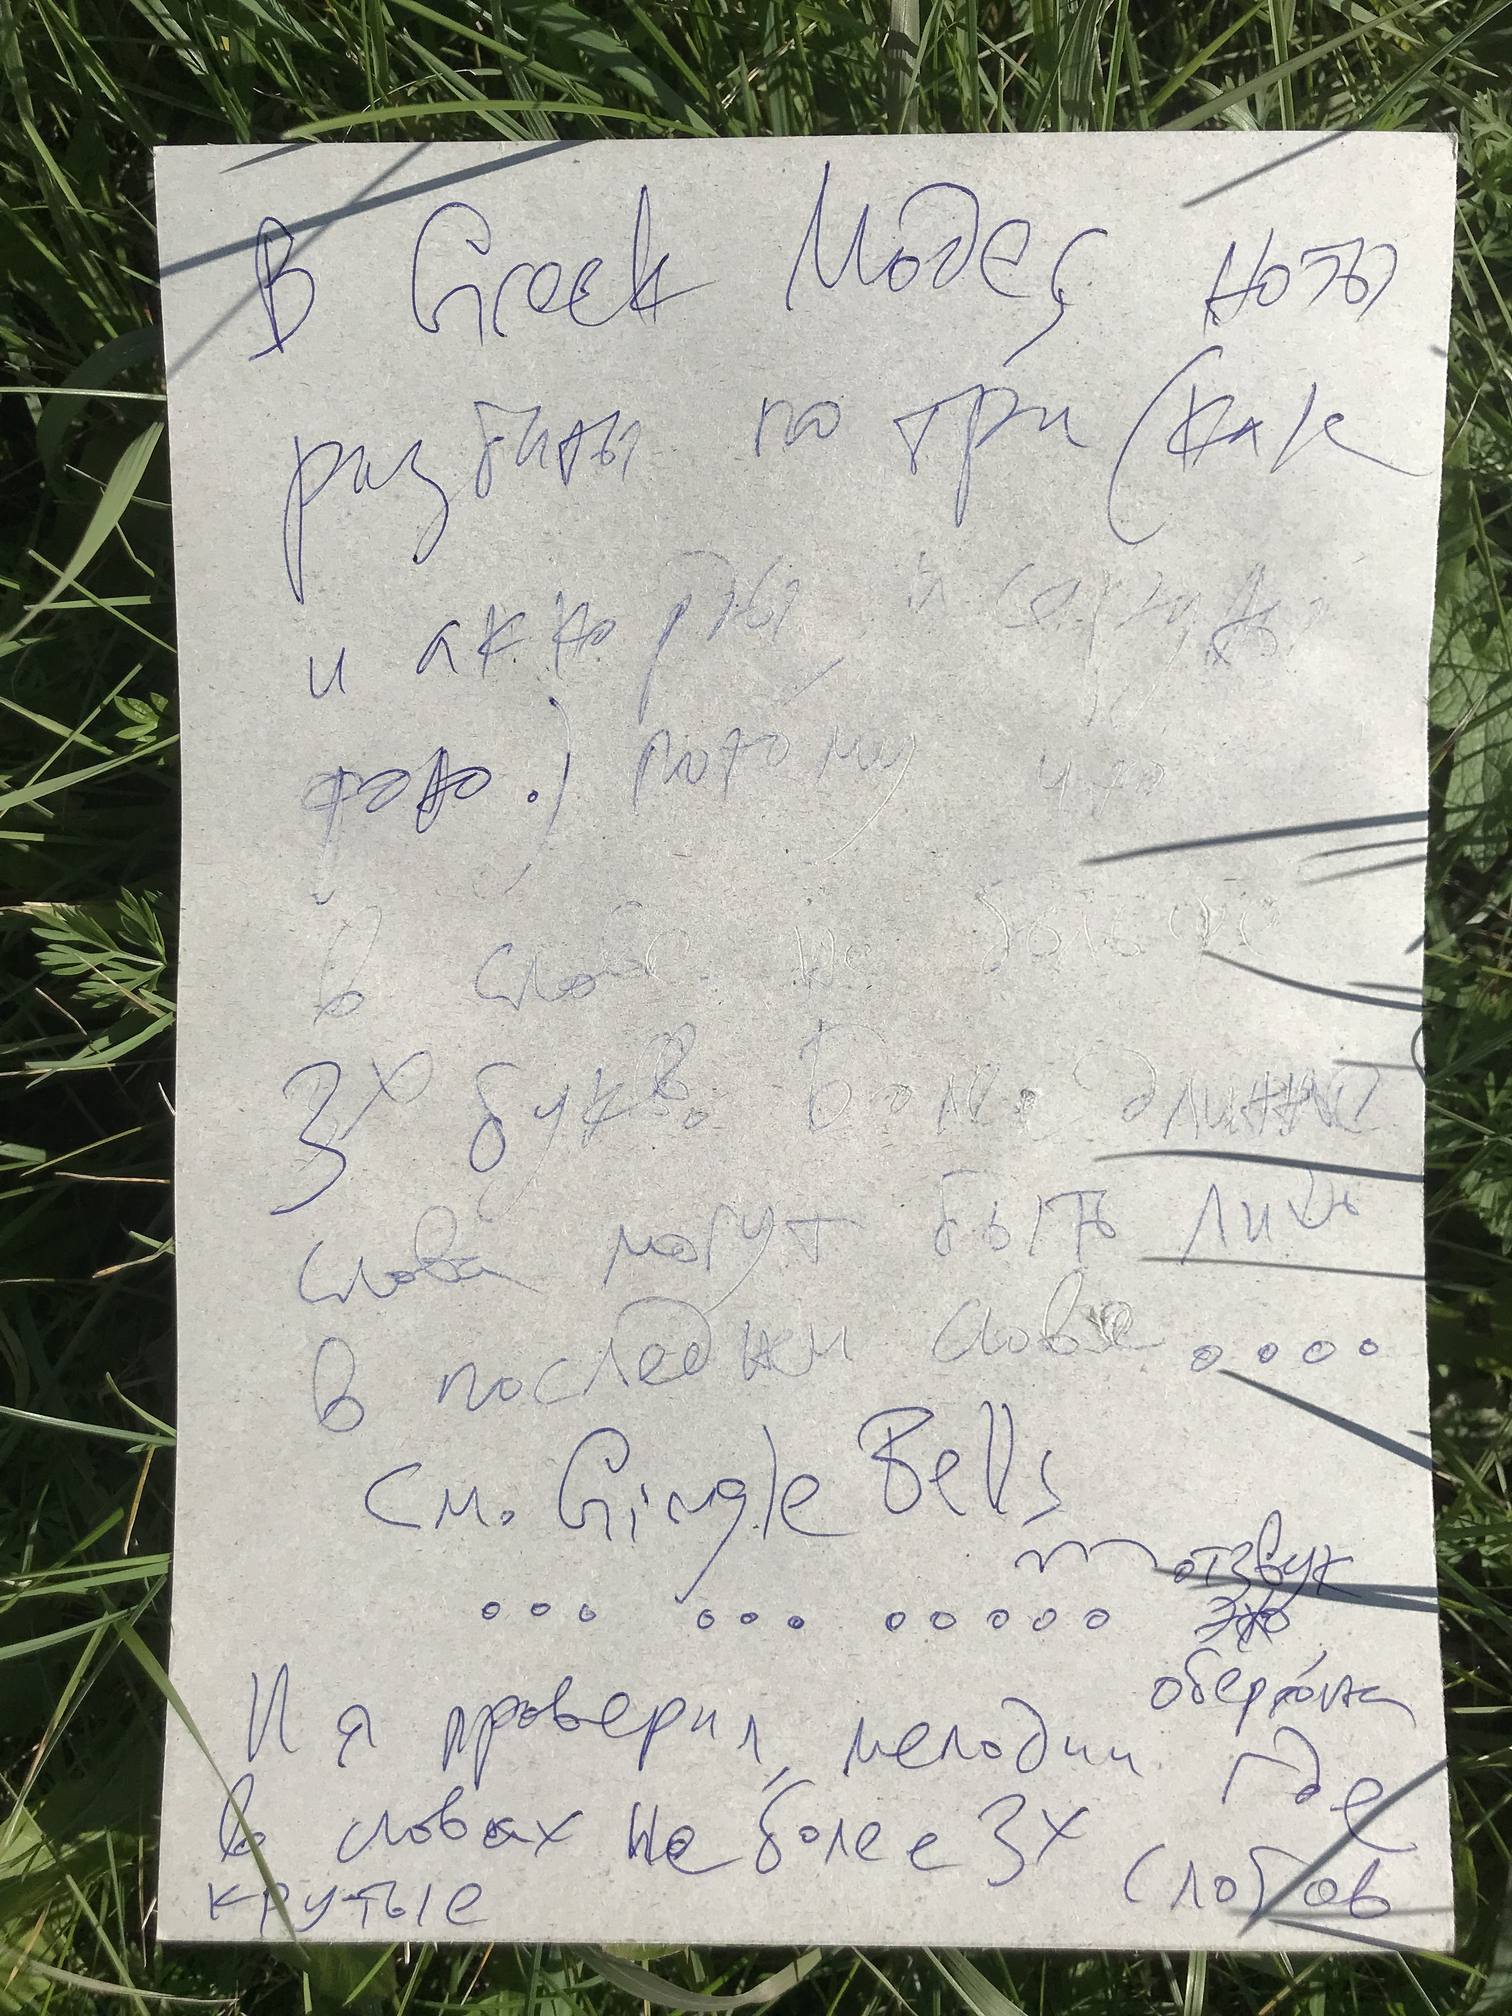 В Greek Modes ноты
разбиты по три (как
и аккорды и
фото.) потому что
в слове не больше
3х букв. Более длинные
слова могут быть лишь
в последнем слове....
см. Gingle Bells
отзвук
... ... ..... эхо
обертона
И я проверил, мелодии где
в словах не более 3х слогов
крутые